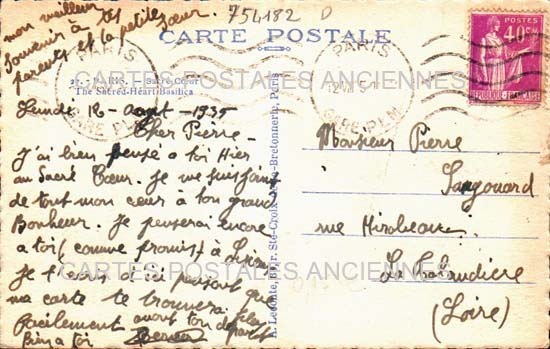 mon meilleur
souvenir à tes
parents et la petite sœur.
754182 D
CARTE POSTALE
PARIS
GARE P.L.M.
POSTES
40c
REPUBLIQUE FRANÇAISE
PARIS. - Sacré-Cœur
The Sacred-Heart Basilica
CARTES POSTALES ANCIENNES
Lundi 12 - Août - 1935
Cher Pierre -
J'ai bien pensé à toi Hier
au Sacré Cœur. Je me suis
de tout mon cœur à ton grand
Bonheur. Je penserai encore
à toi (comme promis) à
Je t'écris d'ici pensant que
ma carte te trouvera plus
facilement avant ton départ
Bien à toi
A. Leconte, rue Ste-Croix-de-la-Bretonnerie, Paris
Monsieur Pierre
rue Mirabeau
La Talaudière
(Loire)
CARTES POSTALES ANCIENNES